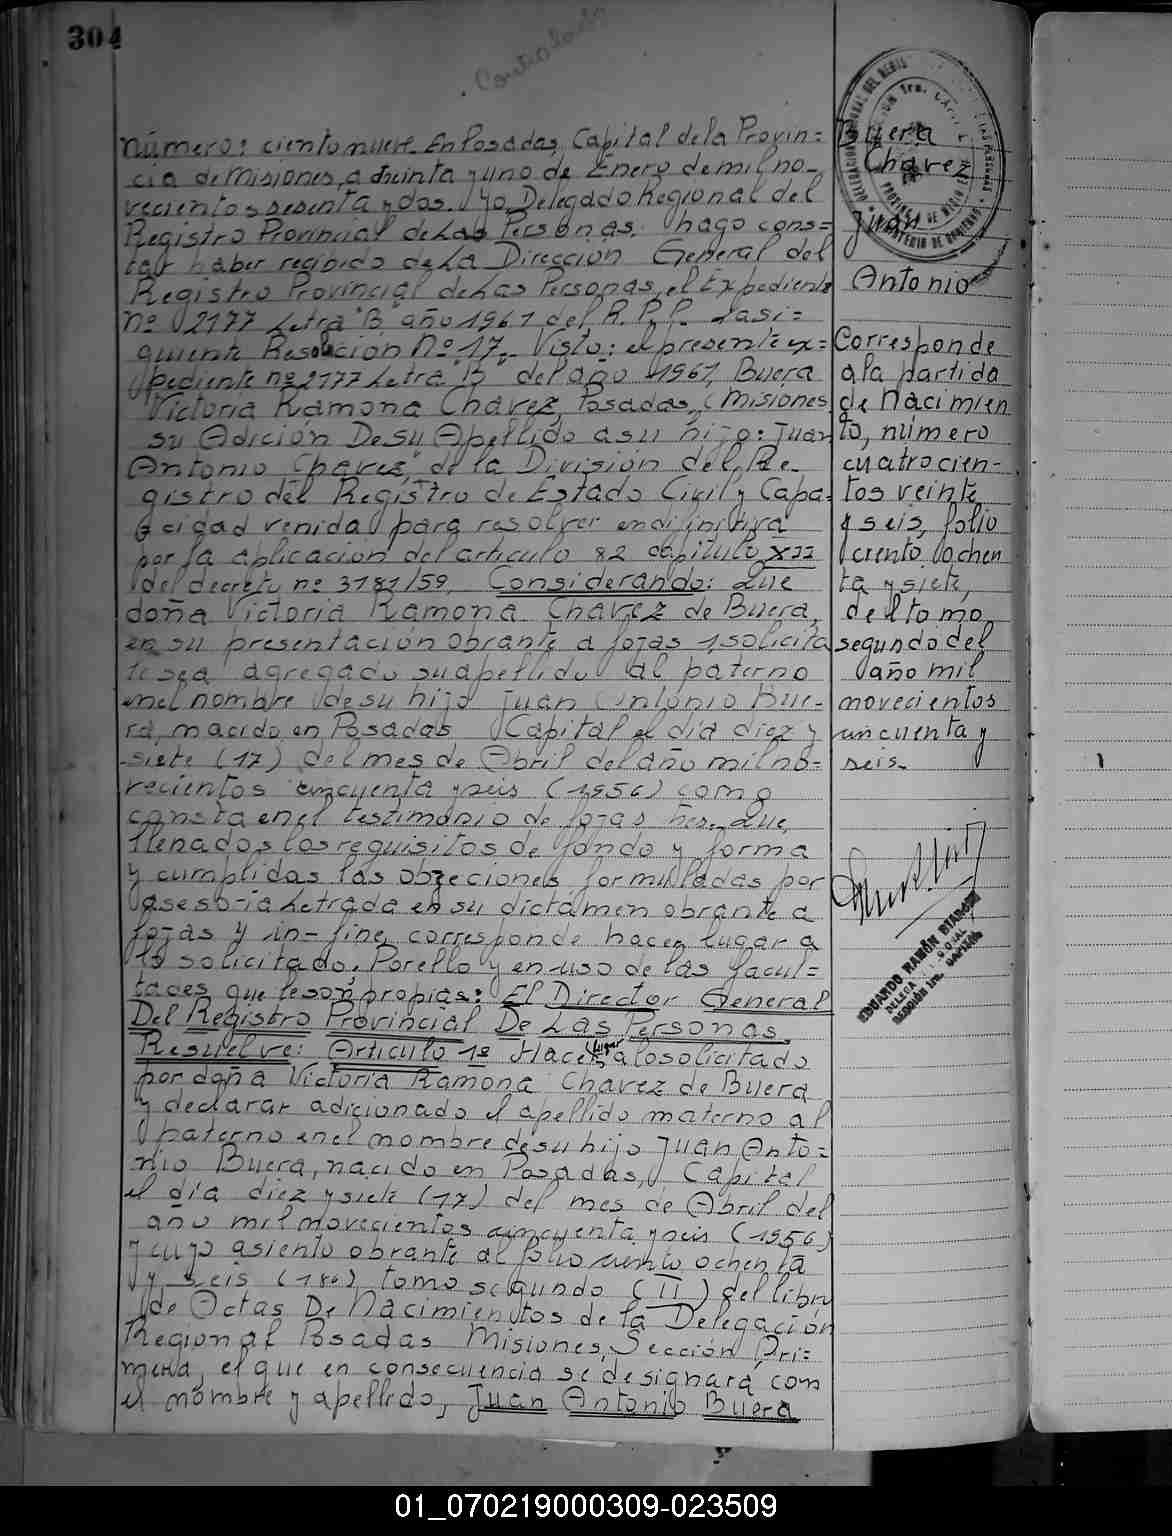 304
Controlado
número: ciento nueve En Posadas, Capital de la Provin=
cia de Misiones, a treinta y uno de Enero de mil no-
vecientos sesenta y dos. Yo, Delegado Regional del
Registro Provincial de Las Personas, hago cons=
tar haber recibido de La Direccion General del
Registro Provincial de Las Personas, el Expediente
Nº 2177 Letra "B" año 1961 del R.P.P. La si=
guiente Resolucion Nº 17.- Visto: el presente ex=
pediente nº 2177 Letra "B" del año 1961, Buera
Victoria Ramona Chavez, Posadas, (Misiones,
su Adición De su Apellido a su hijo: Juan
Antonio Chavez" de la División del Re-
gistro del Registro de Estado Civil y Capa=
cidad venida para resolver en difinitiva
por la aplicacion del articulo 82 capitulo XII
del decreto nº 3181/59. Considerando: Que
doña Victoria Ramona Chavez de Buera,
en su presentación obrante a fojas 1, solicita
le sea agregado su apellido al paterno
en el nombre de su hijo Juan Antonio Bue-
ra, nacido en Posadas Capital el día diez y
siete (17) del mes de Abril del año mil no=
vecientos cincuenta y seis (1956) como
consta en el testimonio de fojas tres. Que,
llenados los requisitos de fondo y forma
y cumplidas las objeciones formuladas por
asesoria Letrada en su dictamen obrante a
fojas y in-fine, corresponde hacer lugar a
lo solicitado. Por ello y en uso de las facul=
tades que le son propias: El Director General
Del Registro Provincial De Las Personas
Resuelve: Articulo 1º Hacer lugar a lo solicitado
por doña Victoria Ramona Chavez de Buera
y declarar adicionado el apellido materno al
paterno en el nombre de su hijo Juan Anto=
nio Buera, nacido en Posadas, Capital
el día diez y siete (17) del mes de Abril del
año mil novecientos cincuenta y seis (1956)
y cuyo asiento obrante al folio ciento ochenta
y seis (186) tomo segundo (II) del libro
de Actas De Nacimientos de la Delegación
Regional Posadas Misiones, Sección Pri=
mera, el que en consecuencia se designará con
el nombre y apellido, Juan Antonio Buera
Buera
Chavez
Juan
Antonio
Corresponde
a la partida
de Nacimien
to, número
cuatrocien-
tos veinte
y seis, folio
ciento ochen
ta y siete,
del tomo
segundo del
año mil
novecientos
cincuenta y
seis.
EDUARDO RAMÓN
SECCIÓN 1ra. CAPITAL
01_070219000309-023509